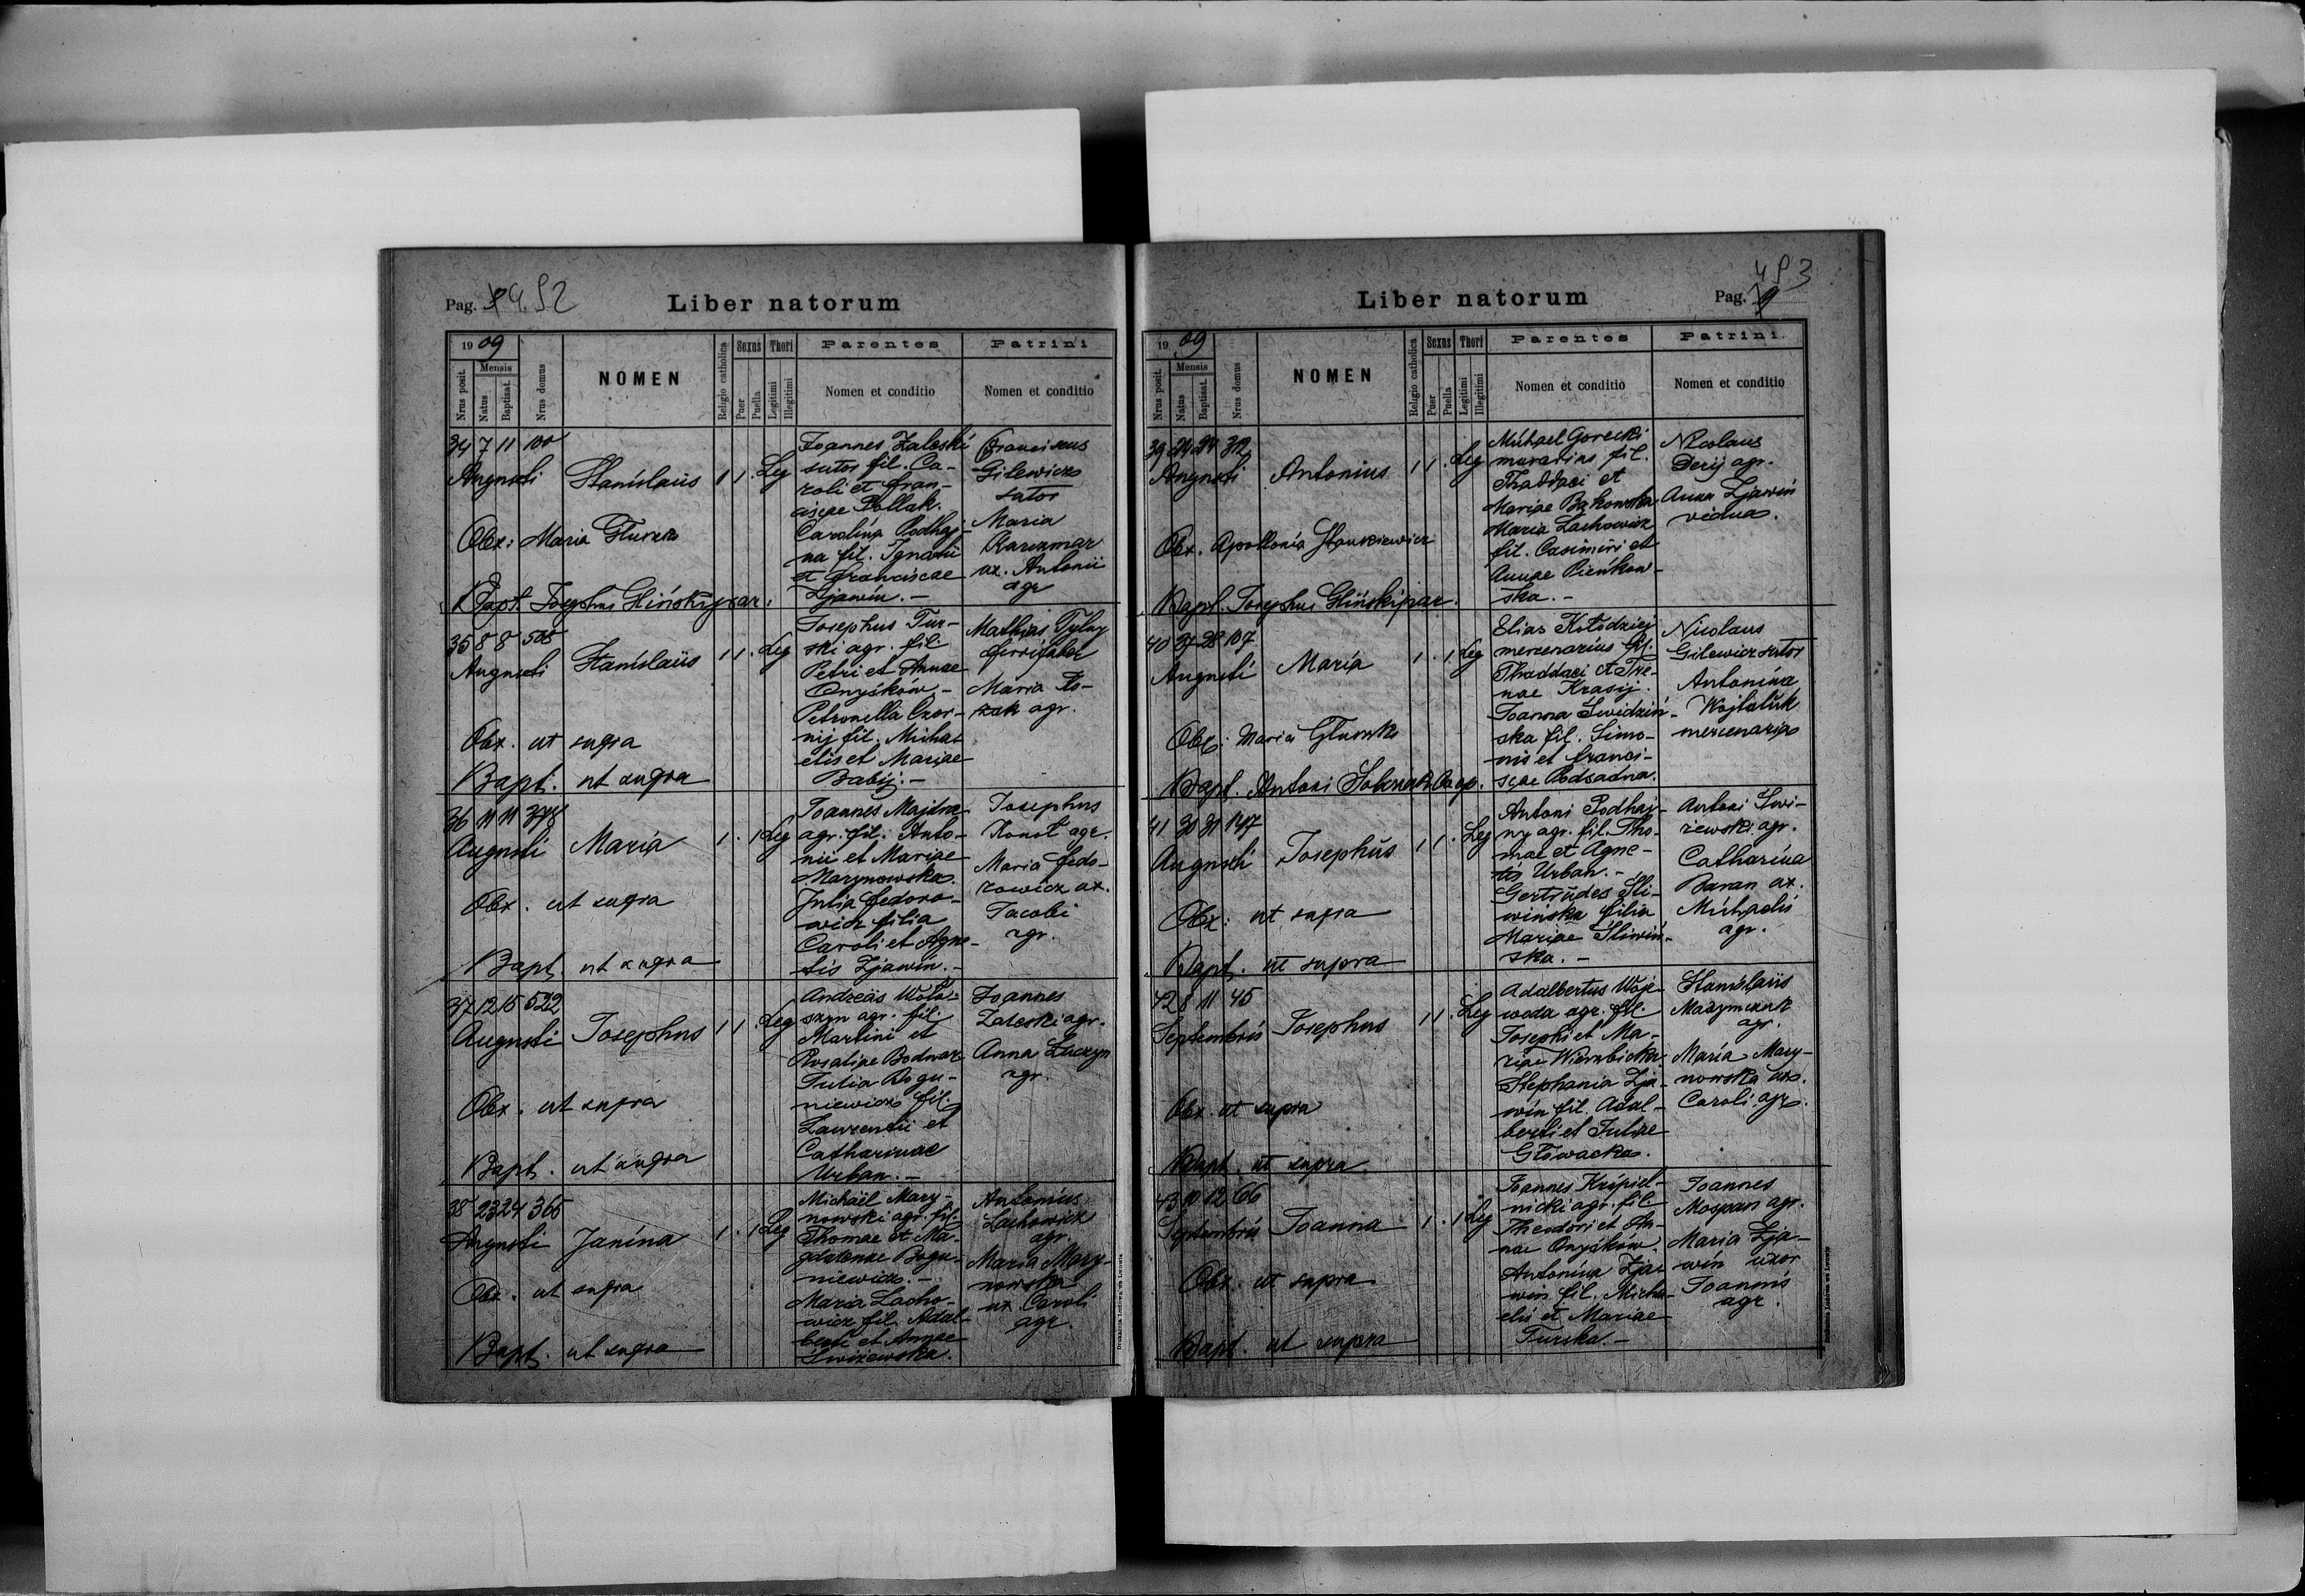 Pag. 452
Liber natorum
1909
Nrus posit.
Mensis
Natus
Baptisat.
Nrus domus
NOMEN
Religio catholica
Sexus
Puer
Puella
Thori
Legitimi
Illegitimi
Parentes
Nomen et conditio
Patrini
Nomen et conditio
34 7 11 100
Augusti
Stanislaus
1 1. Leg
Obx: Maria
Bapt. Josephus Gliński par.
Joannes Zaleski
sutor fil. Ca-
roli et Fran-
ciscae Pollak.
Carolina Podhaj-
na fil. Ignatii
et Franciscae
Zjawin.-
Franciscus
Gilewicz
sutor
Maria
Karczmar
ux. Antonii
agr
35 8 8 505
Augusti
Stanislaus
1 1. Leg
Obx. ut supra
Bapt. ut supra
Josephus Tur-
ski agr. fil
Petri et Annae
Onyśków-
Petronella Czor-
nij fil. Micha-
elis et Mariae
Babij.-
Mathias Tylny
ferrifaber
Maria Ko-
zak agr.
36 11 11 378
Augusti
Maria
1. 1 Leg
Obx. ut supra
Bapt. ut supra
Joannes Majdra
agr. fil. Anto-
nii et Mariae
Marynowska.
Julia Fedoro-
wicz filia
Caroli et Agne-
tis Zjawin.-
Josephus
Konot agr.
Maria Fedo-
rowicz ux.
Jacobi
agr.
37 12 15 522
Augusti
Josephus
1 1. Leg
Obx. ut supra
Bapt. ut supra
Andreas Woło-
szyn agr. fil.
Martini et
Rosaliae Bodnar
Julia Bogu-
niewicz fil.
Laurentii et
Catharinae
Urban.-
Joannes
Zaleski agr.
Anna
agr.
38 23 24 365
Augusti
Janina
1. 1 Leg
Obx. ut supra
Bapt. ut supra
Michaël Mary-
nowski agr. fil.
Thomae et Ma-
gdalenae Bogu-
niewicz.-
Maria Lacho-
wicz fil. Adal-
berti et Annae
Swizewska.
Antonius
Lachowicz
agr.
Maria Mary-
nowska
ux. Caroli
agr.
Liber natorum
Pag. 453
9
1909
Nrus posit.
Mensis
Natus
Baptisat.
Nrus domus
NOMEN
Religio catholica
Sexus
Puer
Puella
Thori
Legitimi
Illegitimi
Parentes
Nomen et conditio
Patrini
Nomen et conditio
39 24 24 312
Augusti
Antonius
1 1. Leg
Obx. Apollonia Stankiewicz
Bapt. Josephus Gliński par.
Michael Gorecki
murarius fil.
Thaddaei et
Mariae Bąkowska
Maria Lachowicz
fil. Casimiri et
Annae Pieńkow-
ska.-
Nicolaus
Derij agr.
Anna Zjawin
vidua.
40 27 28 107
Augusti
Maria
1. 1 Leg
Obx: Maria
Bapt. Antoni Coop.
Elias Kołodziej
mercenarius fil.
Thaddaei et Ire-
nae Krasij.
Joanna Swidziń-
ska fil. Simo-
nis et Franci-
scae Podsadna.
Nicolaus
Gilewicz sutor
Antonina
Wojtaluk
mercenaria
41 30 31 147
Augusti
Josephus
1 1. Leg
Obx: ut supra
Bapt. ut supra
Antoni Podhaj-
ny agr. fil. Tho-
mae et Agne-
tis Urban.-
Gertrudes Śli-
wińska filia
Mariae Śliwiń-
ska.-
Antoni Swi-
zewski agr.
Catharina
Baran ux.
Michaelis
agr.
42 8 11 45
Septembris
Josephus
1 1. Leg
Obx. ut supra
Bapt. ut supra
Adalbertus Woje-
woda agr. fil.
Josephi et Ma-
riae Wierzbicka
Stephania Zja-
win fil. Adal-
berti et Juliae
Głowacka.
Stanislaus
Maxymczuk
agr.
Maria Mary-
nowska ux.
Caroli agr.
43 10 12 66
Septembris
Joanna
1. 1 Leg
Obx. ut supra
Bapt. ut supra
Joannes Kripiel-
nicki agr. fil.
Theodori et An-
nae Onyśków.
Antonina Zja-
win fil. Micha-
elis et Mariae
Turska.-
Joannes
Mospan agr.
Maria Zja-
win uxor
Joannis
agr.